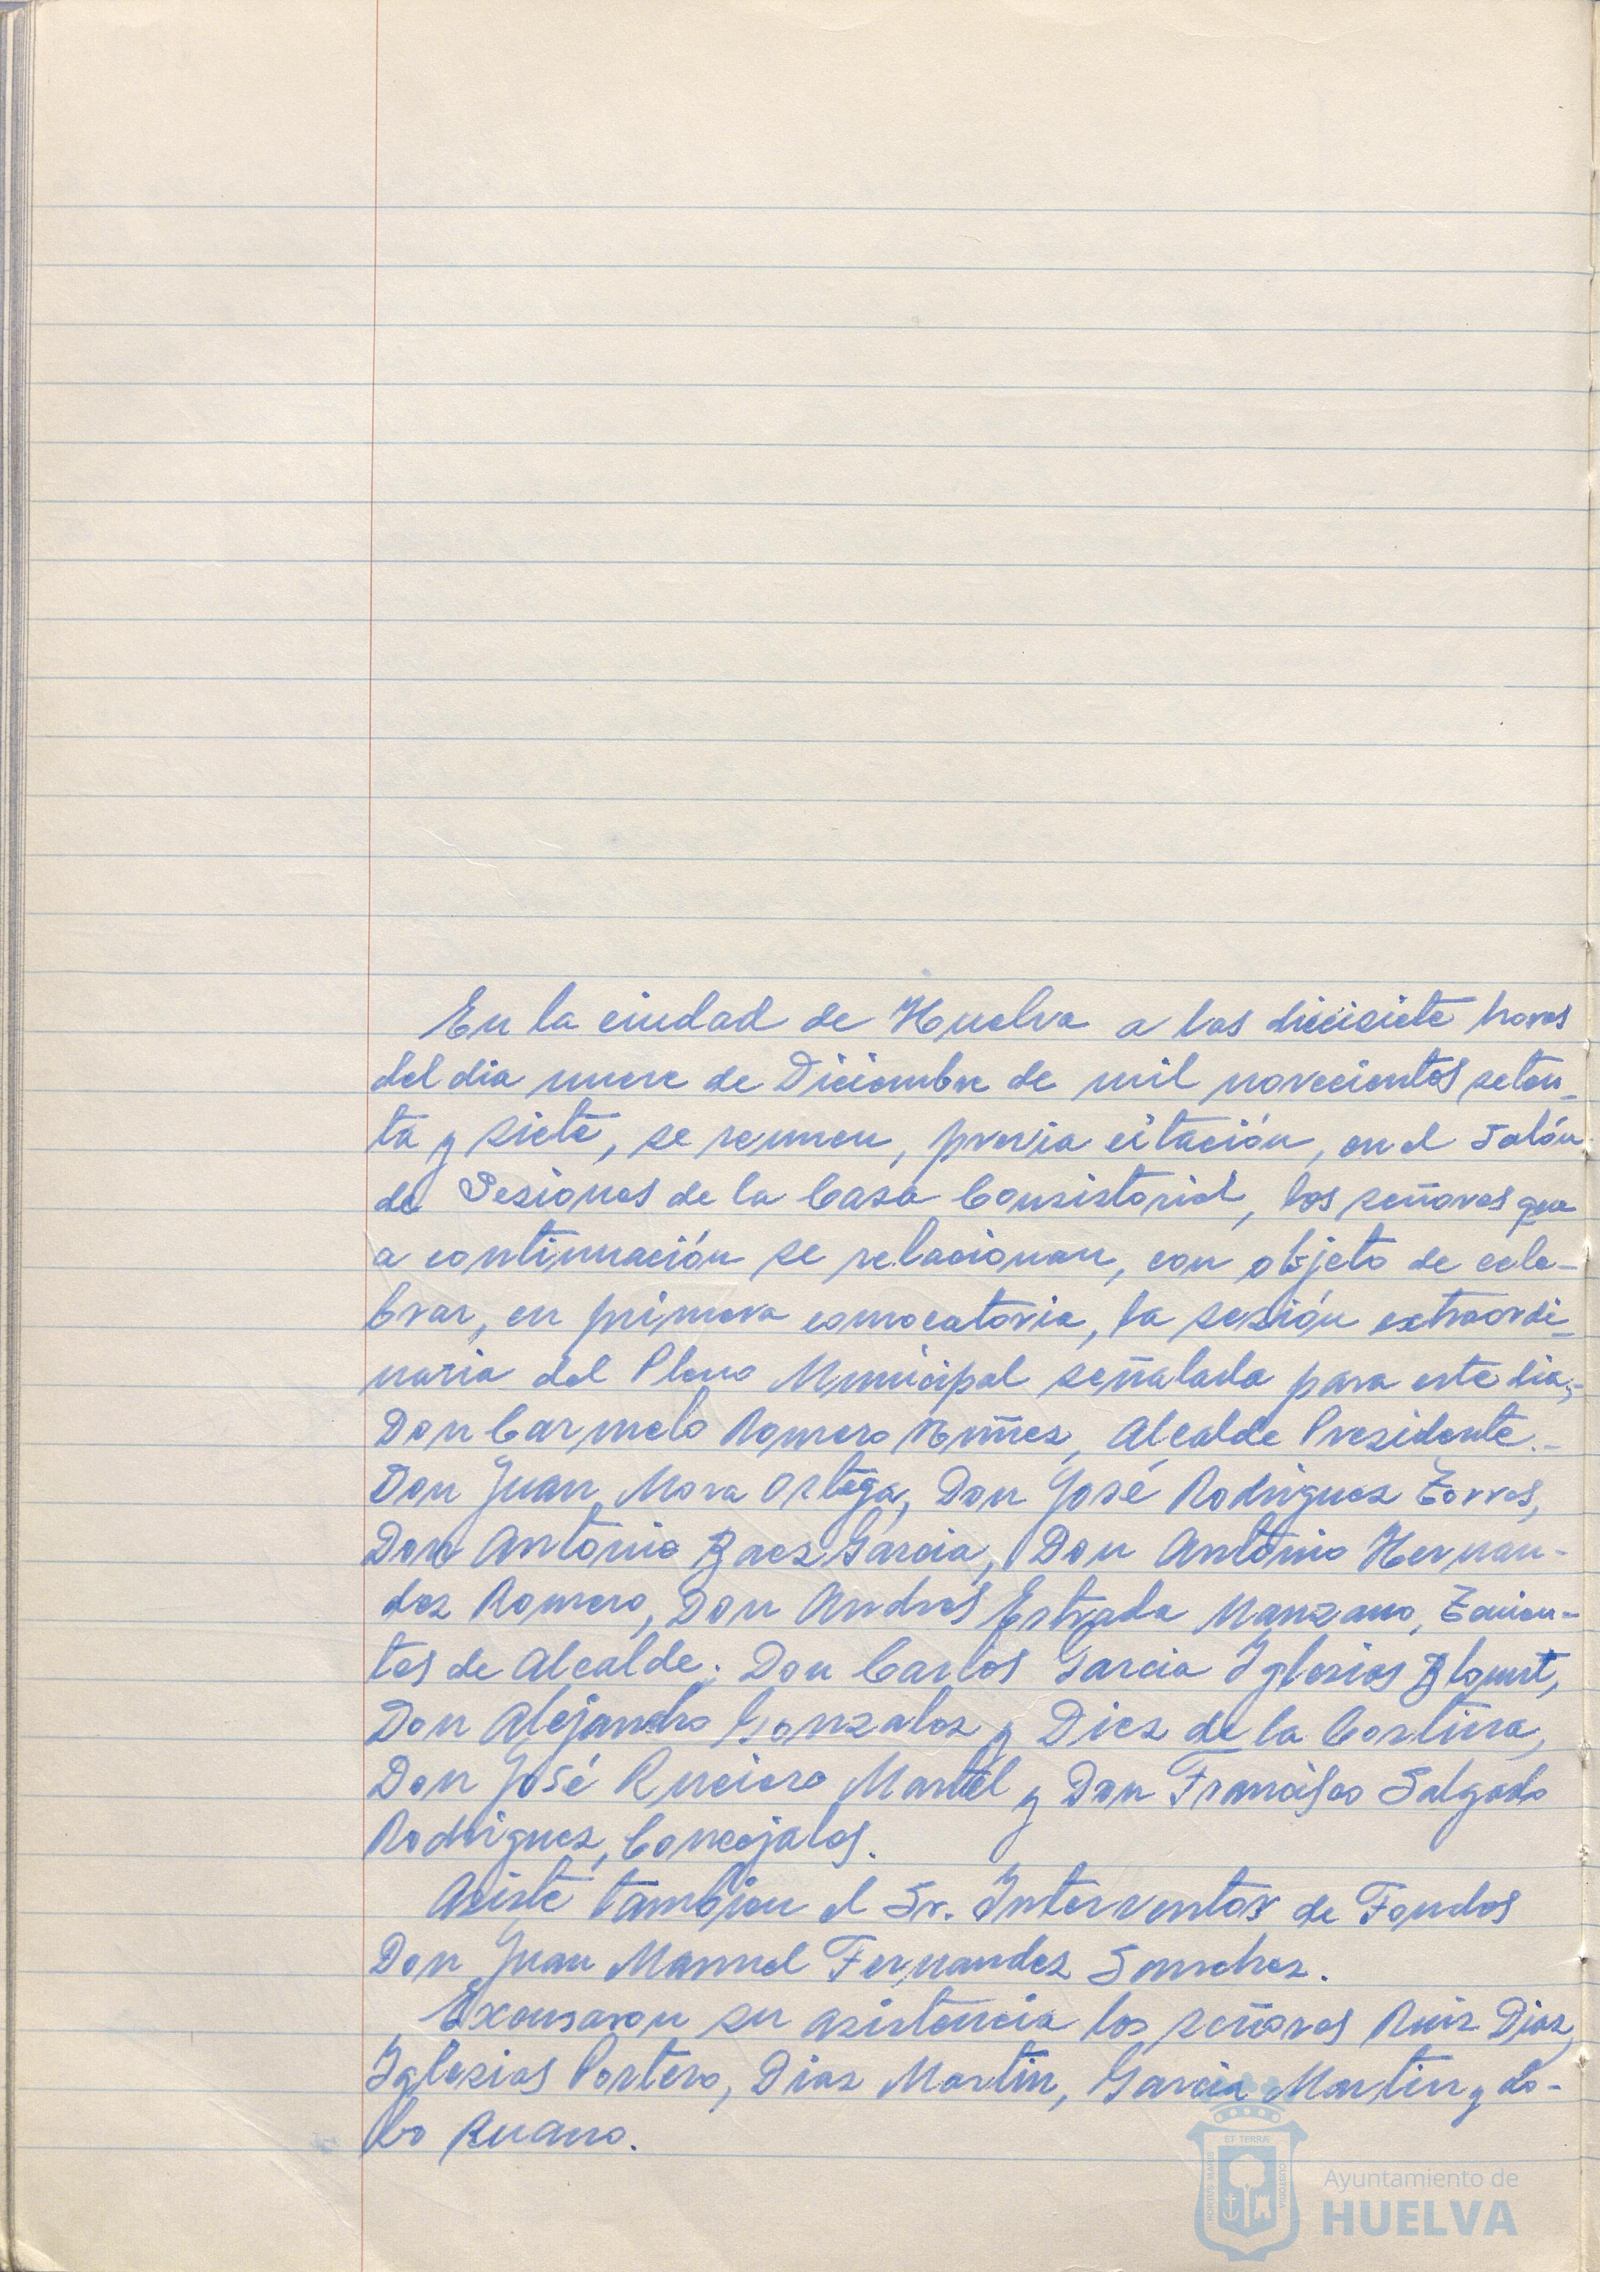 En la ciudad de Huelva a las diecisiete horas
del dia nueve de Diciembre de mil novecientos seten-
ta y siete, se reunen, previa citación, en el Salón
de Sesiones de la Casa Consistorial, los señores que
a continuación se relacionan, con objeto de cele-
brar, en primera convocatoria, la sesión extraordi-
naria del Pleno Municipal señalada para este dia.-
Don Carmelo Romero Nuñez, Alcalde Presidente.-
Don Juan Mora Ortega, Don José Rodriguez Torres,
Don Antonio Baez Garcia, Don Antonio Hernan-
dez Romero, Don Andres Estrada Manzano, Tenien-
tes de Alcalde; Don Carlos Garcia Iglesias Blount,
Don Alejandro Gonzalez y Diez de la Cortina,
Don José Ruciero Martel y Don Francisco Salgado
Rodriguez, Concejales.
Asiste tambien el Sr. Interventor de Fondos
Don Juan Manuel Fernandez Sanchez.
Excusaron su asistencia los señores Ruiz Diaz,
Iglesias Portero, Diaz Martin, Garcia Martin y Lo-
bo Ruano.
PORTUS MARIS
ET TERRÆ
CUSTODIA
Ayuntamiento de
HUELVA